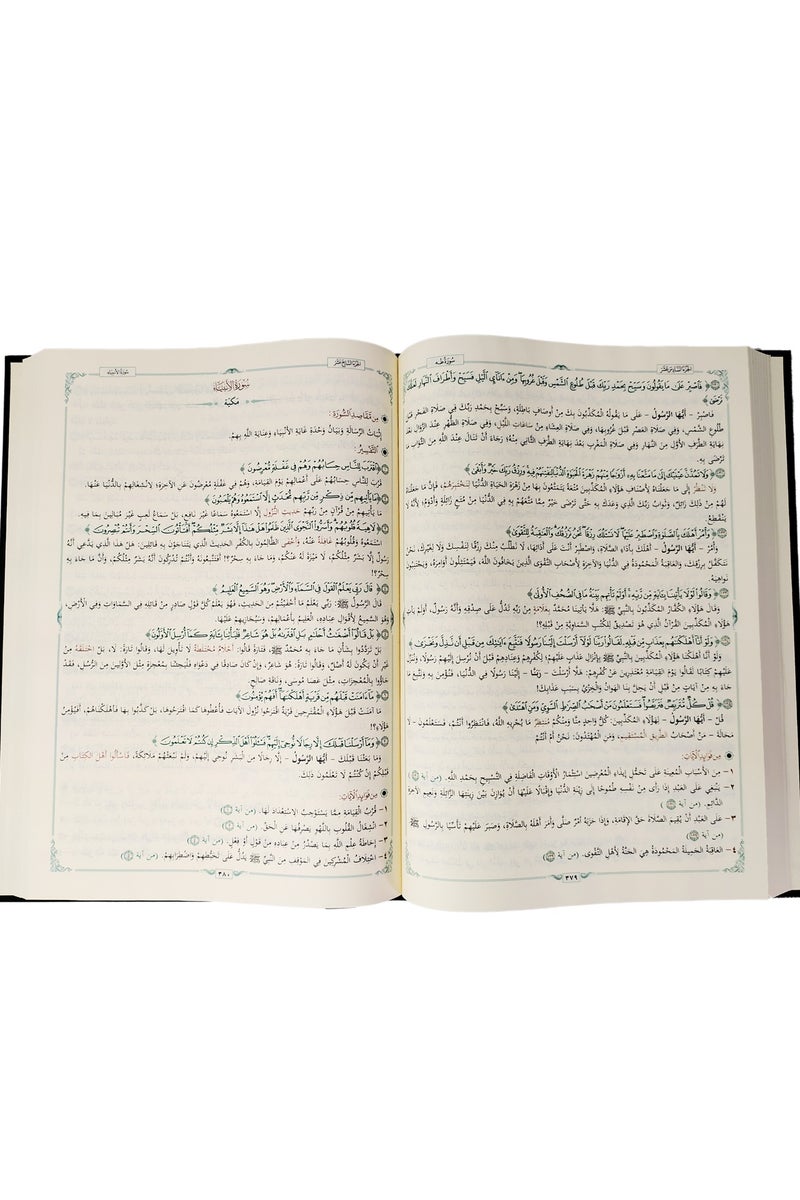 سُورَةُ طه
الجُزْءُ السَّادِسَ عَشَرَ
﴿فَاصْبِرْ عَلَى مَا يَقُولُونَ وَسَبِّحْ بِحَمْدِ رَبِّكَ قَبْلَ طُلُوعِ الشَّمْسِ وَقَبْلَ غُرُوبِهَا وَمِنْ ءَانَآيِ الَّيْلِ فَسَبِّحْ وَأَطْرَافَ النَّهَارِ لَعَلَّكَ
تَرْضَى﴾
فَاصْبِرْ - أَيُّهَا الرَّسُولُ - عَلَى مَا يَقُولُهُ الْمُكَذِّبُونَ بِكَ مِنْ أَوْصَافٍ بَاطِلَةٍ، وَسَبِّحْ بِحَمْدِ رَبِّكَ فِي صَلَاةِ الفَجْرِ قَبْلَ
طُلُوعِ الشَّمْسِ، وَفِي صَلَاةِ العَصْرِ قَبْلَ غُرُوبِهَا، وَفِي صَلَاةِ العِشَاءِ مِنْ سَاعَاتِ اللَّيْلِ، وَفِي صَلَاةِ الظُّهْرِ عِنْدَ الزَّوَالِ بَعْدَ
نِهَايَةِ الطَّرَفِ الأَوَّلِ مِنَ النَّهَارِ وَفِي صَلَاةِ الْمَغْرِبِ بَعْدَ نِهَايَةِ الطَّرَفِ الثَّانِي مِنْهُ؛ رَجَاءَ أَنْ تَنَالَ عِنْدَ اللَّهِ مِنَ الثَّوَابِ مَا
تَرْضَى بِهِ.
﴿وَلَا تَمُدَّنَّ عَيْنَيْكَ إِلَى مَا مَتَّعْنَا بِهِ أَزْوَاجًا مِنْهُمْ زَهْرَةَ الْحَيَوةِ الدُّنْيَا لِنَفْتِنَهُمْ فِيهِ وَرِزْقُ رَبِّكَ خَيْرٌ وَأَبْقَى﴾
وَلَا تَنْظُرْ إِلَى مَا جَعَلْنَاهُ لِأَصْنَافِ هَؤُلَاءِ الْمُكَذِّبِينَ مُتْعَةً يَتَمَتَّعُونَ بِهَا مِنْ زَهْرَةِ الحَيَاةِ الدُّنْيَا لِنَخْتَبِرَهُمْ، فَإِنَّ مَا جَعَلْنَا
لَهُمْ مِنْ ذَلِكَ زَائِلٌ، وَثَوَابُ رَبِّكَ الَّذِي وَعَدَكَ بِهِ حَتَّى تَرْضَى خَيْرٌ مِمَّا مَتَّعَهُمْ بِهِ فِي الدُّنْيَا مِنْ مُتَعٍ زَائِلَةٍ وَأَدْوَمُ؛ لِأَنَّهُ لَا
يَنْقَطِعُ.
﴿وَأْمُرْ أَهْلَكَ بِالصَّلَوةِ وَاصْطَبِرْ عَلَيْهَا لَا نَسْئَلُكَ رِزْقًا نَحْنُ نَرْزُقُكَ وَالْعَقِبَةُ لِلتَّقْوَى﴾
وَأْمُرْ - أَيُّهَا الرَّسُولُ - أَهْلَكَ بِأَدَاءِ الصَّلَاةِ، وَاصْطَبِرْ أَنْتَ عَلَى أَدَائِهَا، لَا نَطْلُبُ مِنْكَ رِزْقًا لِنَفْسِكَ وَلَا لِغَيْرِكَ، نَحْنُ
نَتَكَفَّلُ بِرِزْقِكَ، وَالعَاقِبَةُ الْمَحْمُودَةُ فِي الدُّنْيَا وَالآخِرَةِ لِأَصْحَابِ التَّقْوَى الَّذِينَ يَخَافُونَ اللَّهَ، فَيَمْتَثِلُونَ أَوَامِرَهُ، وَيَجْتَنِبُونَ
نَوَاهِيَهُ.
﴿وَقَالُوا لَوْلَا يَأْتِينَا بِئَايَةٍ مِنْ رَبِّهِ أَوَلَمْ تَأْتِهِمْ بَيِّنَةُ مَا فِي الصُّحُفِ الْأُولَى﴾
وَقَالَ هَؤُلَاءِ الْكُفَّارُ الْمُكَذِّبُونَ بِالنَّبِيِّ ﷺ: هَلَّا يَأْتِينَا مُحَمَّدٌ بِعَلَامَةٍ مِنْ رَبِّهِ تَدُلُّ عَلَى صِدْقِهِ وَأَنَّهُ رَسُولٌ، أَوَلَمْ يَأْتِ
هَؤُلَاءِ الْمُكَذِّبِينَ القُرْآنُ الَّذِي هُوَ تَصْدِيقٌ لِلْكُتُبِ السَّمَاوِيَّةِ مِنْ قَبْلِهِ؟!
﴿وَلَوْ أَنَّا أَهْلَكْنَهُمْ بِعَذَابٍ مِنْ قَبْلِهِ لَقَالُوا رَبَّنَا لَوْلَا أَرْسَلْتَ إِلَيْنَا رَسُولًا فَنَتَّبِعَ ءَايَتِكَ مِنْ قَبْلِ أَنْ نَذِلَّ وَنَخْزَى﴾
وَلَوْ أَنَّا أَهْلَكْنَا هَؤُلَاءِ الْمُكَذِّبِينَ بِالنَّبِيِّ ﷺ بِإِنْزَالِ عَذَابٍ عَلَيْهِمْ؛ لِكُفْرِهِمْ وَعِنَادِهِمْ قَبْلَ أَنْ نُرْسِلَ إِلَيْهِمْ رَسُولًا، وَنُنْزِلَ
عَلَيْهِمْ كِتَابًا لَقَالُوا يَوْمَ القِيَامَةِ مُعْتَذِرِينَ عَنْ كُفْرِهِمْ: هَلَّا أَرْسَلْتَ - رَبَّنَا - إِلَيْنَا رَسُولًا فِي الدُّنْيَا، فَنُؤْمِنَ بِهِ وَنَتَّبِعَ مَا
جَاءَ بِهِ مِنْ آيَاتٍ مِنْ قَبْلِ أَنْ يَحِلَّ بِنَا الهَوَانُ وَالْخِزْيُ بِسَبَبِ عَذَابِكَ!
﴿قُلْ كُلٌّ مُتَرَبِّصٌ فَتَرَبَّصُوا فَسَتَعْلَمُونَ مَنْ أَصْحَبُ الصِّرَاطِ السَّوِيِّ وَمَنِ اهْتَدَى﴾
قُلْ - أَيُّهَا الرَّسُولُ - لِهَؤُلَاءِ الْمُكَذِّبِينَ: كُلُّ وَاحِدٍ مِنَّا وَمِنْكُمْ مُنْتَظِرٌ مَا يُجْرِيهِ اللَّهُ، فَانْتَظِرُوا أَنْتُمْ، فَسَتَعْلَمُونَ - لَا
مَحَالَةَ - مَنْ أَصْحَابُ الطَّرِيقِ الْمُسْتَقِيمِ، وَمَنِ الْمُهْتَدُونَ: نَحْنُ أَمْ أَنْتُمْ
مِنْ فَوَائِدِ الآيَاتِ:
١- مِنَ الأَسْبَابِ الْمُعِينَةِ عَلَى تَحَمُّلِ إِيذَاءِ الْمُعْرِضِينَ اسْتِثْمَارُ الأَوْقَاتِ الفَاضِلَةِ فِي التَّسْبِيحِ بِحَمْدِ اللَّهِ. (من آية)
٢- يَنْبَغِي عَلَى العَبْدِ إِذَا رَأَى مِنْ نَفْسِهِ طُمُوحًا إِلَى زِينَةِ الدُّنْيَا وَإِقْبَالًا عَلَيْهَا أَنْ يُوَازِنَ بَيْنَ زِينَتِهَا الزَّائِلَةِ وَنَعِيمِ الآخِرَةِ
الدَّائِمِ. (من آية)
٣- عَلَى العَبْدِ أَنْ يُقِيمَ الصَّلَاةَ حَقَّ الإِقَامَةِ، وَإِذَا حَزَبَهُ أَمْرٌ صَلَّى وَأَمَرَ أَهْلَهُ بِالصَّلَاةِ، وَصَبَرَ عَلَيْهِمْ تَأَسِّيًا بِالرَّسُولِ ﷺ
(من آية)
٤- العَاقِبَةُ الجَمِيلَةُ الْمَحْمُودَةُ هِيَ الجَنَّةُ لِأَهْلِ التَّقْوَى. (من آية)
٣٧٩
الجُزْءُ السَّابِعَ عَشَرَ
سُورَةُ الأَنْبِيَاءِ
سُورَةُ الأَنْبِيَاءِ
مَكِّيَّة
مِن مَّقَاصِدِ السُّورَةِ:
إِثْبَاتُ الرِّسَالَةِ وَبَيَانُ وَحْدَةِ غَايَةِ الأَنْبِيَاءِ وَعِنَايَةِ اللَّهِ بِهِمْ.
التَّفْسِيرُ:
﴿اقْتَرَبَ لِلنَّاسِ حِسَابُهُمْ وَهُمْ فِي غَفْلَةٍ مُعْرِضُونَ﴾
قَرُبَ لِلنَّاسِ حِسَابُهُمْ عَلَى أَعْمَالِهِمْ يَوْمَ القِيَامَةِ، وَهُمْ فِي غَفْلَةٍ مُعْرِضُونَ عَنِ الآخِرَةِ؛ لِانْشِغَالِهِمْ بِالدُّنْيَا عَنْهَا.
﴿مَا يَأْتِيهِمْ مِنْ ذِكْرٍ مِنْ رَبِّهِمْ مُحْدَثٍ إِلَّا اسْتَمَعُوهُ وَهُمْ يَلْعَبُونَ﴾
مَا يَأْتِيهِمْ مِنْ قُرْآنٍ مِنْ رَبِّهِمْ حَدِيثِ النُّزُولِ إِلَّا اسْتَمَعُوهُ سَمَاعًا غَيْرَ نَافِعٍ، بَلْ سَمَاعَ لَعِبٍ غَيْرَ مُبَالِينَ بِمَا فِيهِ.
﴿لَاهِيَةً قُلُوبُهُمْ وَأَسَرُّوا النَّجْوَى الَّذِينَ ظَلَمُوا هَلْ هَذَا إِلَّا بَشَرٌ مِثْلُكُمْ أَفَتَأْتُونَ السِّحْرَ وَأَنْتُمْ تُبْصِرُونَ﴾
اسْتَمَعُوهُ وَقُلُوبُهُمْ غَافِلَةٌ عَنْهُ، وَأَخْفَى الظَّالِمُونَ بِالكُفْرِ الحَدِيثَ الَّذِي يَتَنَاجَوْنَ بِهِ قَائِلِينَ: هَلْ هَذَا الَّذِي يَدَّعِي أَنَّهُ
رَسُولٌ إِلَّا بَشَرٌ مِثْلُكُمْ، لَا مِيزَةَ لَهُ عَنْكُمْ، وَمَا جَاءَ بِهِ سِحْرٌ؟! أَفَتَتَّبِعُونَهُ وَأَنْتُمْ تُدْرِكُونَ أَنَّهُ بَشَرٌ مِثْلُكُمْ، وَأَنَّ مَا جَاءَ بِهِ
سِحْرٌ؟!
﴿قَالَ رَبِّي يَعْلَمُ الْقَوْلَ فِي السَّمَاءِ وَالْأَرْضِ وَهُوَ السَّمِيعُ الْعَلِيمُ﴾
قَالَ الرَّسُولُ ﷺ: رَبِّي يَعْلَمُ مَا أَخْفَيْتُمْ مِنَ الحَدِيثِ، فَهُوَ يَعْلَمُ كُلَّ قَوْلٍ صَادِرٍ مِنْ قَائِلِهِ فِي السَّمَاوَاتِ وَفِي الأَرْضِ،
وَهُوَ السَّمِيعُ لِأَقْوَالِ عِبَادِهِ، العَلِيمُ بِأَعْمَالِهِمْ، وَسَيُجَازِيهِمْ عَلَيْهَا.
﴿بَلْ قَالُوا أَضْغَثُ أَحْلَمٍ بَلِ افْتَرَىهُ بَلْ هُوَ شَاعِرٌ فَلْيَأْتِنَا بِئَايَةٍ كَمَا أُرْسِلَ الْأَوَّلُونَ﴾
بَلْ تَرَدَّدُوا بِشَأْنِ مَا جَاءَ بِهِ مُحَمَّدٌ ﷺ، فَتَارَةً قَالُوا: أَحْلَامٌ مُخْتَلِطَةٌ لَا تَأْوِيلَ لَهَا، وَقَالُوا تَارَةً: لَا، بَلِ اخْتَلَقَهُ مِنْ
غَيْرِ أَنْ يَكُونَ لَهُ أَصْلٌ، وَقَالُوا تَارَةً: هُوَ شَاعِرٌ، وَإِنْ كَانَ صَادِقًا فِي دَعْوَاهُ فَلْيَجِئْنَا بِمُعْجِزَةٍ مِثْلَ الأَوَّلِينَ مِنَ الرُّسُلِ، فَقَدْ
جَاؤُوا بِالْمُعْجِزَاتِ، مِثْلَ عَصَا مُوسَى، وَنَاقَةِ صَالِحٍ.
﴿مَا ءَامَنَتْ قَبْلَهُمْ مِنْ قَرْيَةٍ أَهْلَكْنَهَا أَفَهُمْ يُؤْمِنُونَ﴾
مَا آمَنَتْ قَبْلَ هَؤُلَاءِ الْمُقْتَرِحِينَ قَرْيَةٌ اقْتَرَحُوا نُزُولَ الآيَاتِ فَأُعْطُوهَا كَمَا اقْتَرَحُوهَا، بَلْ كَذَّبُوا بِهَا فَأَهْلَكْنَاهُمْ، أَفَيُؤْمِنُ
هَؤُلَاءِ؟!
﴿وَمَا أَرْسَلْنَا قَبْلَكَ إِلَّا رِجَالًا نُوحِي إِلَيْهِمْ فَسْئَلُوا أَهْلَ الذِّكْرِ إِنْ كُنْتُمْ لَا تَعْلَمُونَ﴾
وَمَا بَعَثْنَا قَبْلَكَ - أَيُّهَا الرَّسُولُ - إِلَّا رِجَالًا مِنَ البَشَرِ نُوحِي إِلَيْهِمْ، وَلَمْ نَبْعَثْهُمْ مَلَائِكَةً، فَاسْأَلُوا أَهْلَ الكِتَابِ مِنْ
قَبْلِكُمْ إِنْ كُنْتُمْ لَا تَعْلَمُونَ ذَلِكَ
مِنْ فَوَائِدِ الآيَاتِ:
١- قُرْبُ القِيَامَةِ مِمَّا يَسْتَوْجِبُ الاسْتِعْدَادَ لَهَا. (من آية)
٢- انْشِغَالُ القُلُوبِ بِاللَّهْوِ يَصْرِفُهَا عَنِ الحَقِّ. (من آية)
٣- إِحَاطَةُ عِلْمِ اللَّهِ بِمَا يَصْدُرُ مِنْ عِبَادِهِ مِنْ قَوْلٍ أَوْ فِعْلٍ. (من آية)
٤- اخْتِلَافُ الْمُشْرِكِينَ فِي الْمَوْقِفِ مِنَ النَّبِيِّ ﷺ يَدُلُّ عَلَى تَخَبُّطِهِمْ وَاضْطِرَابِهِمْ. (من آية)
٣٨٠